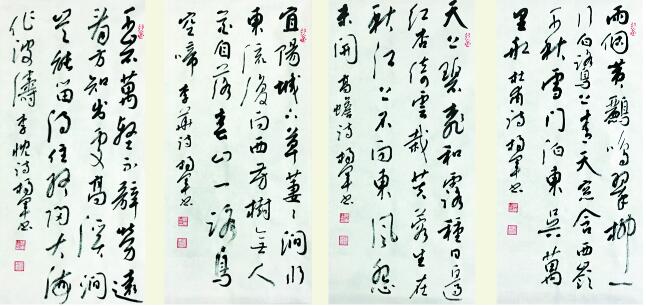 兩個黄鸝鳴翠柳一
行白鷺上青天窓含西嶺
千秋雪門泊東吳萬
里船 杜甫詩 楊軍书
天上碧桃和露種日邊
红杏倚雲栽芙蓉生在
秋江上不向東風怨
未開 高蟾诗 楊軍书
宜陽城下草萋〻澗水
東流復向西芳樹無人
花自落春山一路鳥
空啼 李華诗 楊軍书
千岩萬壑不辭勞遠
看方知出處高溪澗
豈能留得住終歸大海
作波濤 李忱诗 楊軍书